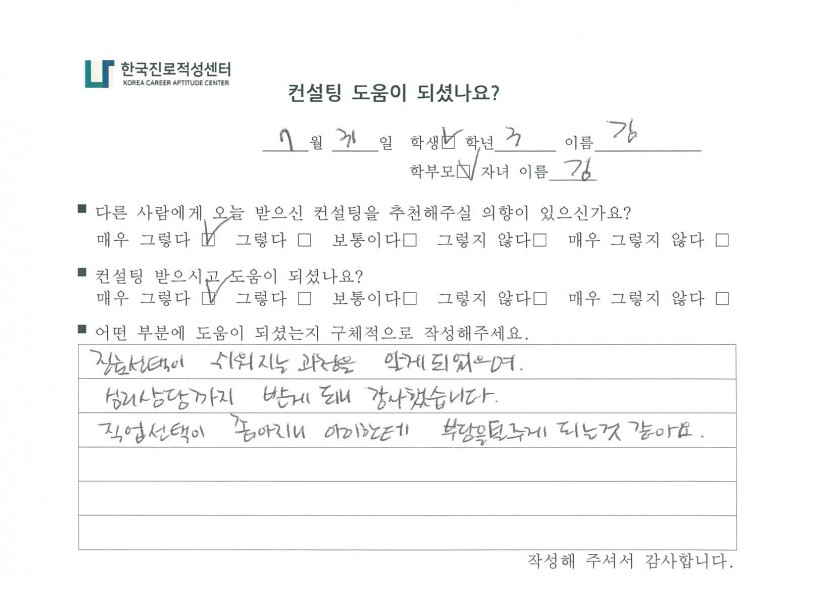 한국진로적성센터
KOREA CAREER APTITUDE CENTER
컨설팅 도움이 되셨나요?
7월 31일 학생☑ 학년 3 이름 김
학부모☑ 자녀 이름 김
■ 다른 사람에게 오늘 받으신 컨설팅을 추천해주실 의향이 있으신가요?
매우 그렇다 ☑ 그렇다 □ 보통이다□ 그렇지 않다□ 매우 그렇지 않다 □
■ 컨설팅 받으시고 도움이 되셨나요?
매우 그렇다 ☑ 그렇다 □ 보통이다□ 그렇지 않다□ 매우 그렇지 않다 □
■ 어떤 부분에 도움이 되셨는지 구체적으로 작성해주세요.
쉬워지는 과정을 알게되었으며.
심리상담까지 받게 되니 감사했습니다.
직업선택이 좁아지니 아이한테 부담을덜주게 되는것 같아요.
작성해 주셔서 감사합니다.